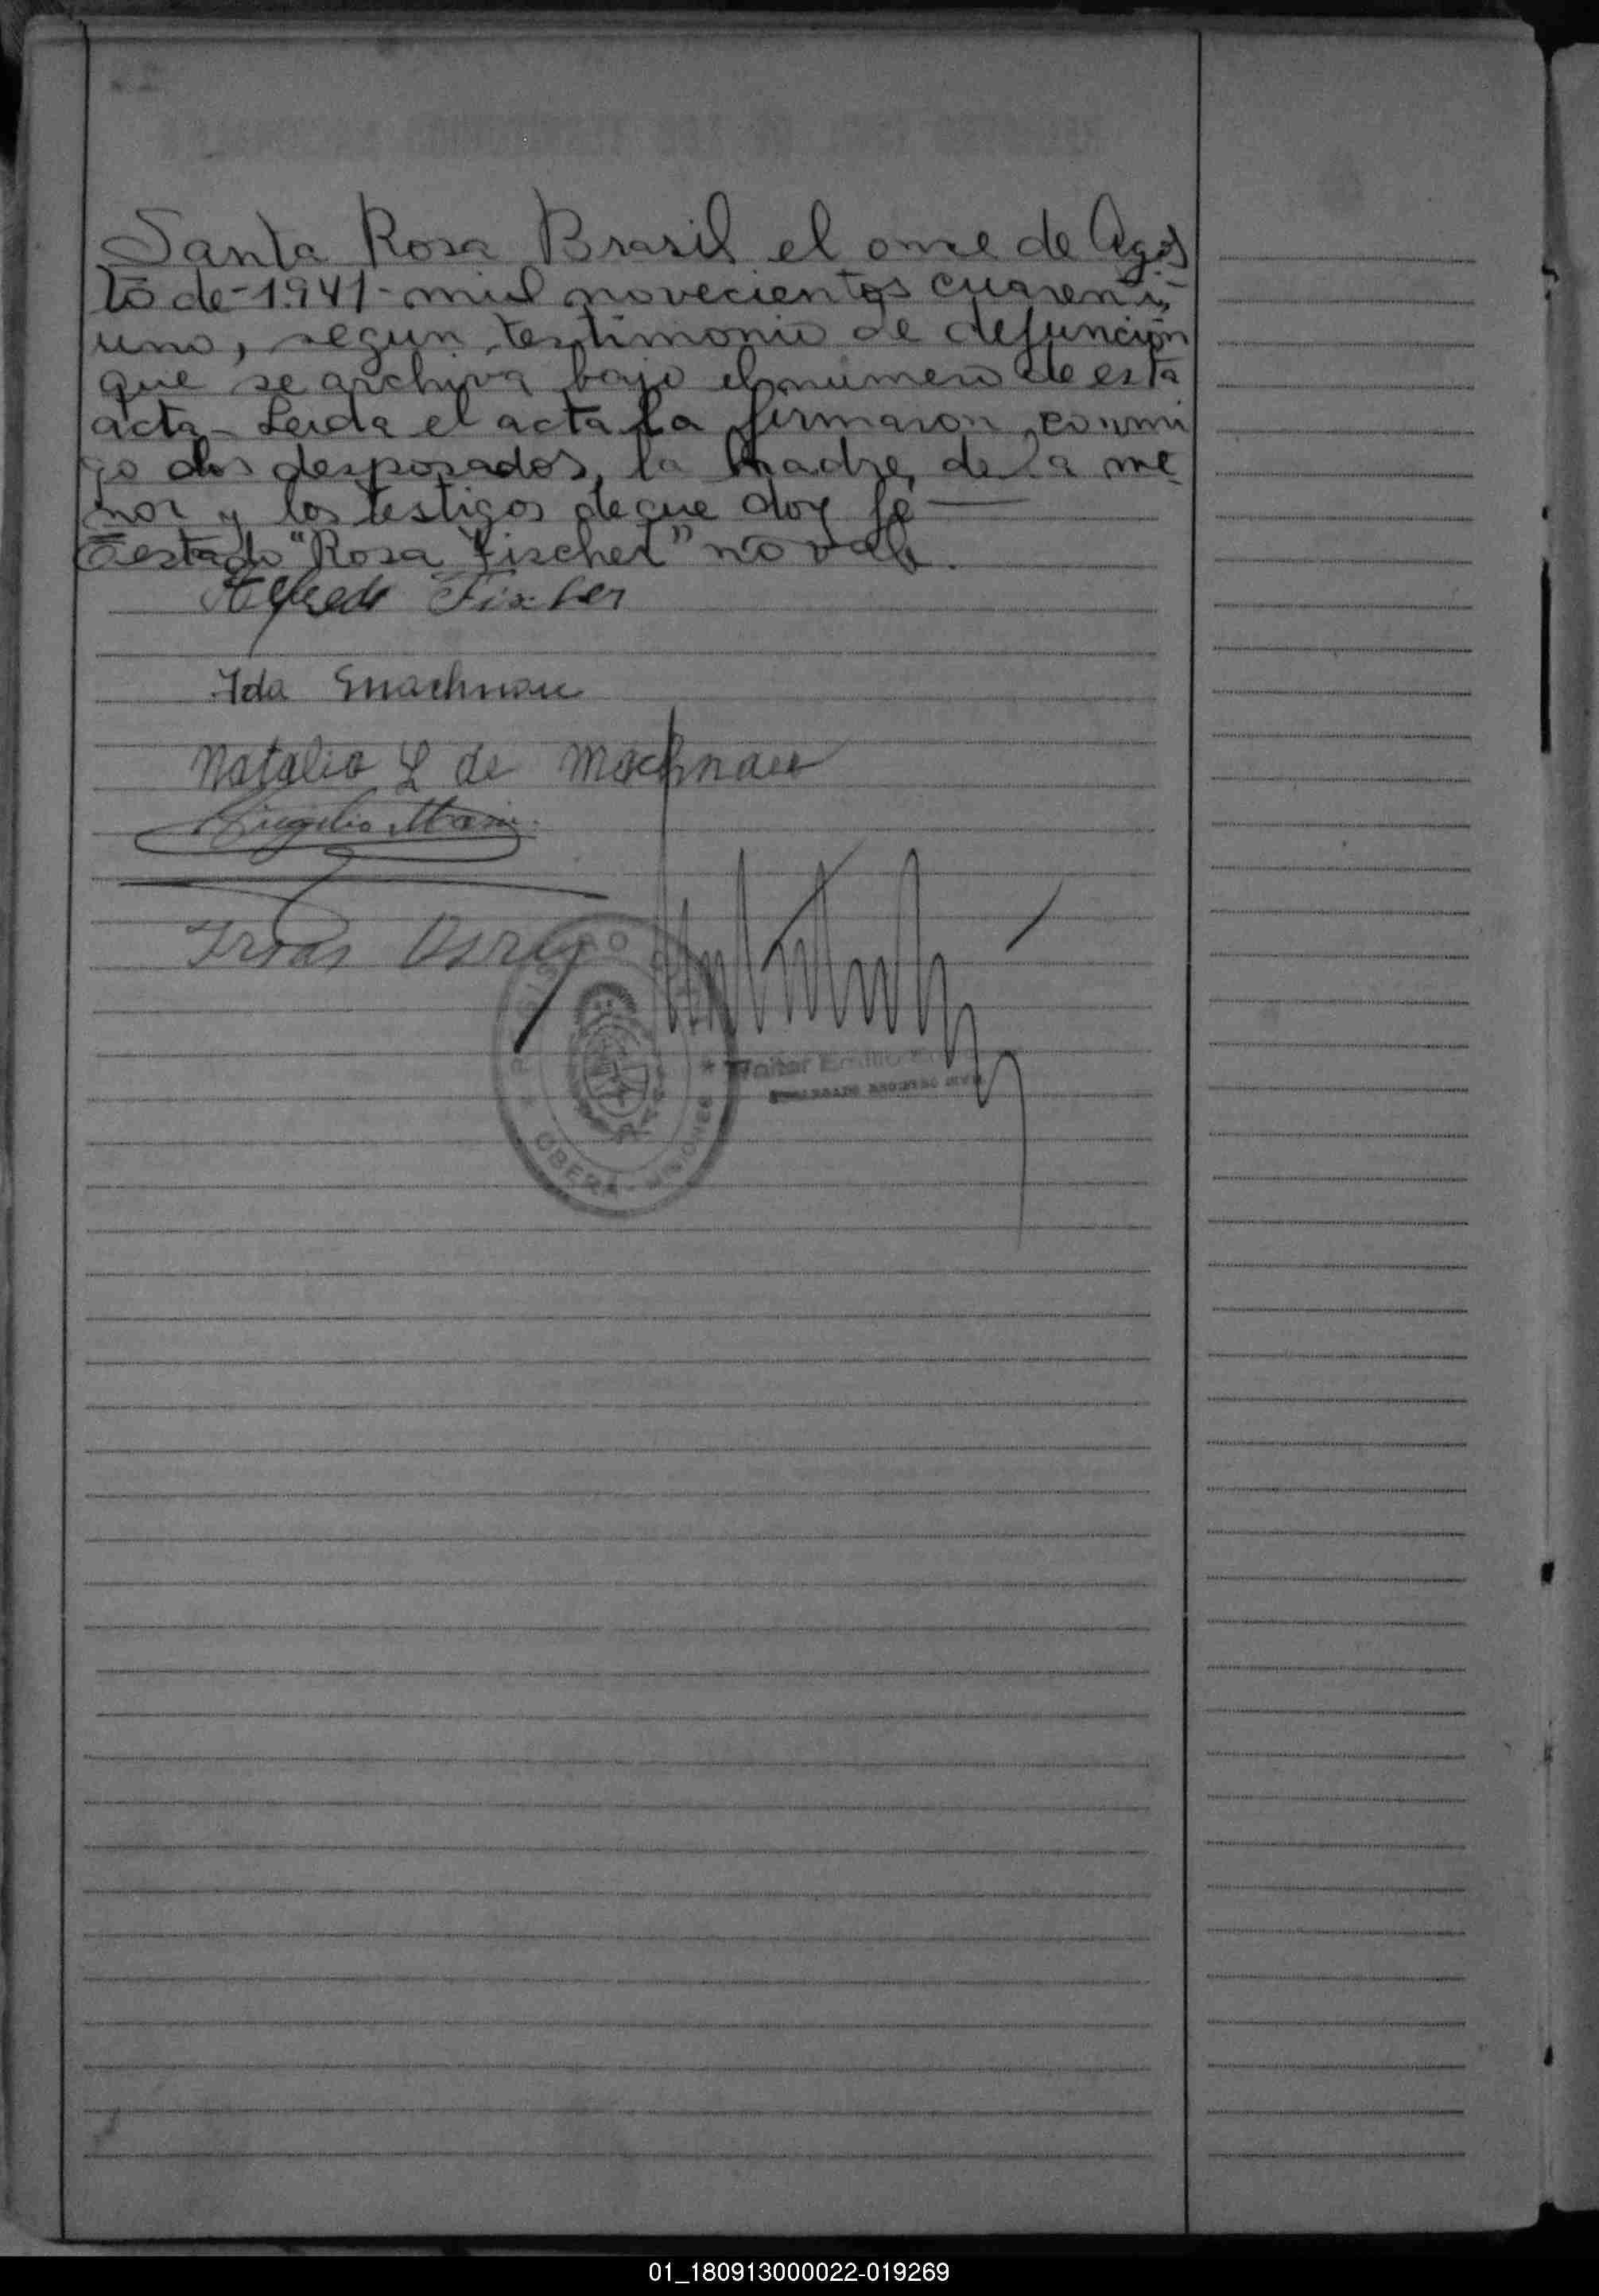 Santa Rosa Brasil el once de Agos
to de -1.941- mil novecientos cuarenti
uno, segun testimonio de defunción
que se archiva bajo el numero de esta
acta - Leida el acta la firmaron conmi
go los desposados, la madre de la me
nor y los testigos de que doy fé —
Testado "Rosa Fischer" no vale.
Alfredo Fischer
Ida
Natalia L de Machnau
Virgilio
REGISTRO
OBERA - MISIONES
Walter Emilio
REGISTRO CIVIL
01_180913000022-019269